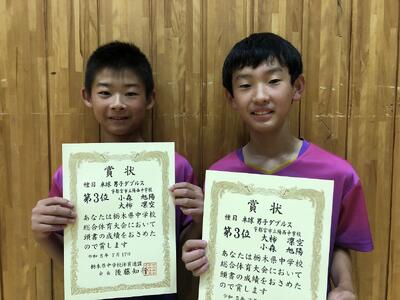 賞状
種目 卓球 男子ダブルス
宇都宮市立陽西中学校
第3位 小森 旭陽
大柿 凛空
あなたは栃木県中学校
総合体育大会において
頭書の成績をおさめた
ので賞します
令和5年7月17日
栃木県中学校体育連盟
会長 後藤知
賞状
種目 卓球 男子ダブルス
宇都宮市立陽西中学校
第3位 大柿 凛空
小森 旭陽
あなたは栃木県中学校
総合体育大会において
頭書の成績をおさめた
ので賞します